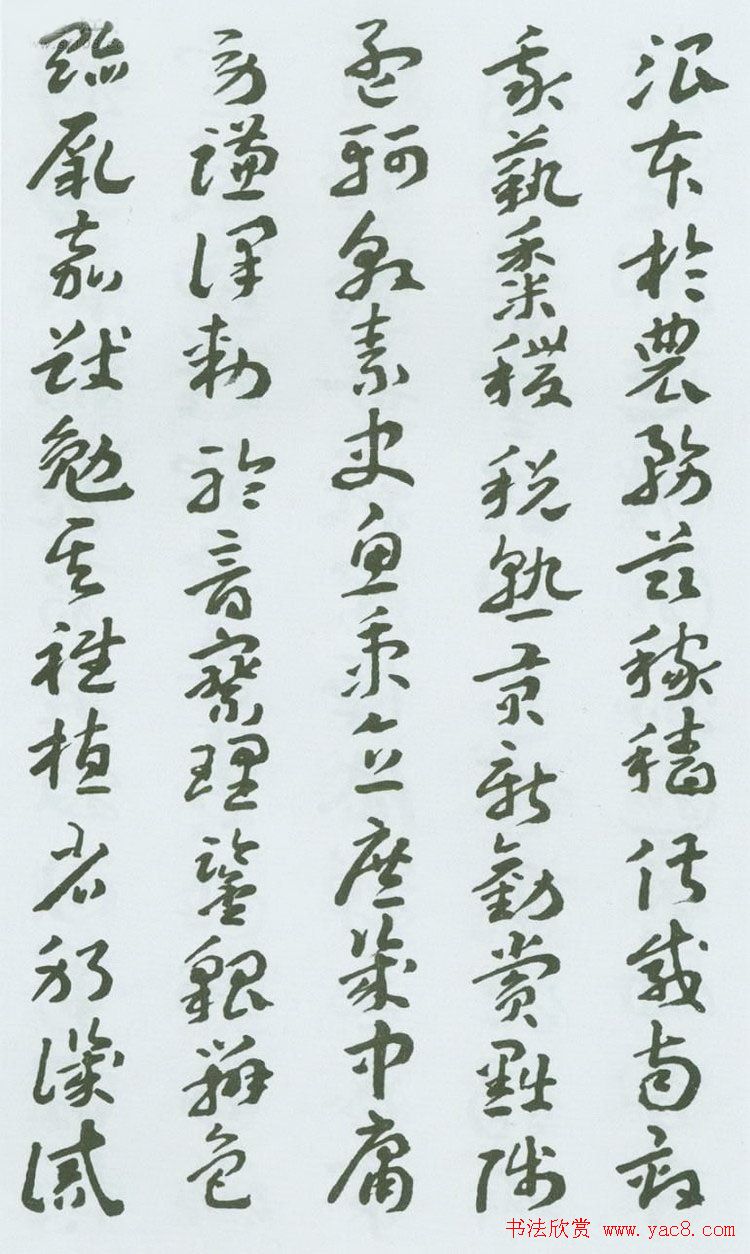 治本於農務茲稼穡俶載南畝
我藝黍稷稅熟貢新勸賞黜陟
孟軻敦素史魚秉直庶幾中庸
勞謙謹敕聆音察理鑑貌辨色
貽厥嘉猷勉其祗植省躬譏誡
书法欣赏 www.yac8.com